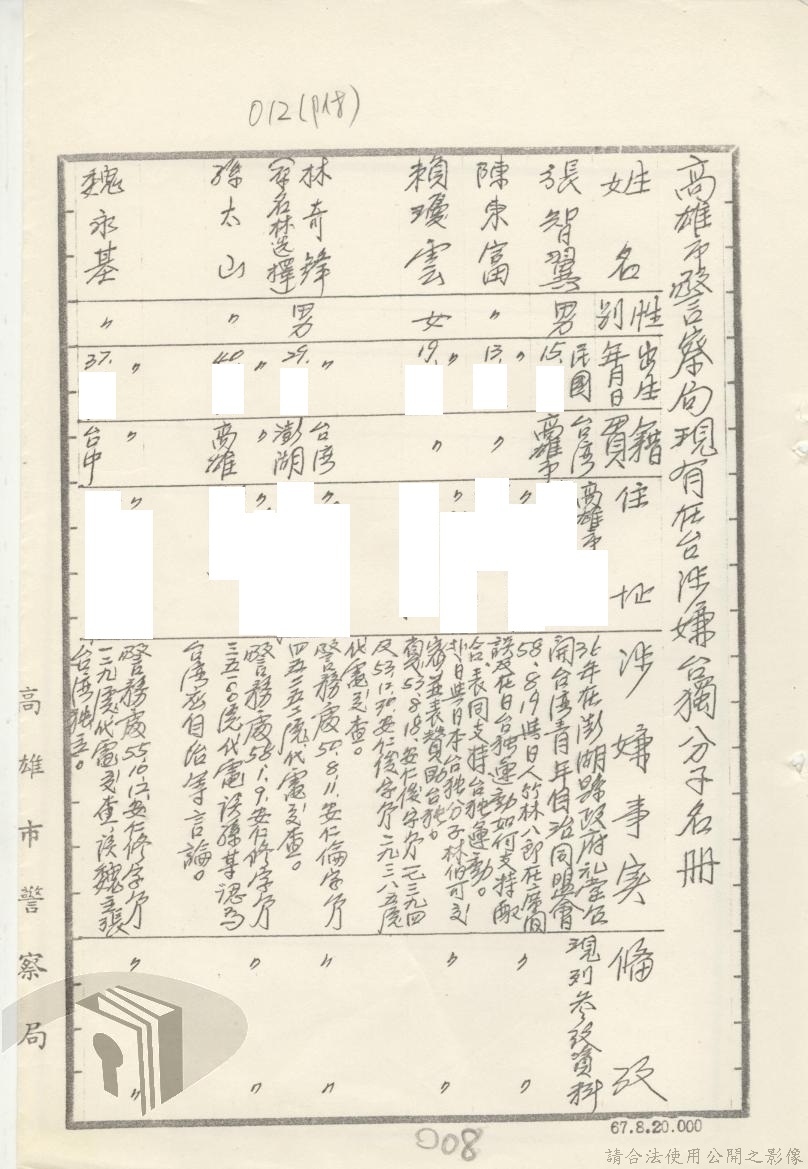 012(p18)
高雄市警察局現有在台涉嫌台獨分子名冊
姓名 性別 出生年月日 籍貫 住址 涉嫌事実 備攷
張智翼 男 民國15. 台湾高雄市 高雄市 36年在澎湖縣政府礼堂召
開台湾青年自治同盟會 現列参攷資料
陳東富 〃 〃13. 〃 〃 58.8.19與日人竹林八郎在席間
談及在日台独運動如何支持配
合、表同支持台独運動。 〃 〃
賴瓊雲 女 〃19. 〃 〃 赴日與日本台独分子林伯可交
密並表贊助台独。
53.8.18.安仁俊字第一七三九四
及53.12.30.安仁俊字第二九三八五號
代電交查。 〃 〃
林奇鋒 男 〃29. 台湾澎湖 〃 警務處50.8.11.安仁倫字第
(冠名林选擇) 四五三五二號代電交查。 〃 〃
孫太山 〃 〃40. 〃高雄 〃 警務處55.1.9.安仁修字第
三五一〇號代電该孫某認為
台湾應自治等言論。 〃 〃
魏永基 〃 〃37. 〃台中 〃 警務處55.10.12.安仁修字第
一二九號代電交查、该魏主張
台湾独立。 〃 〃
高雄市警察局
67.8.20.000
008
請合法使用公開之影像